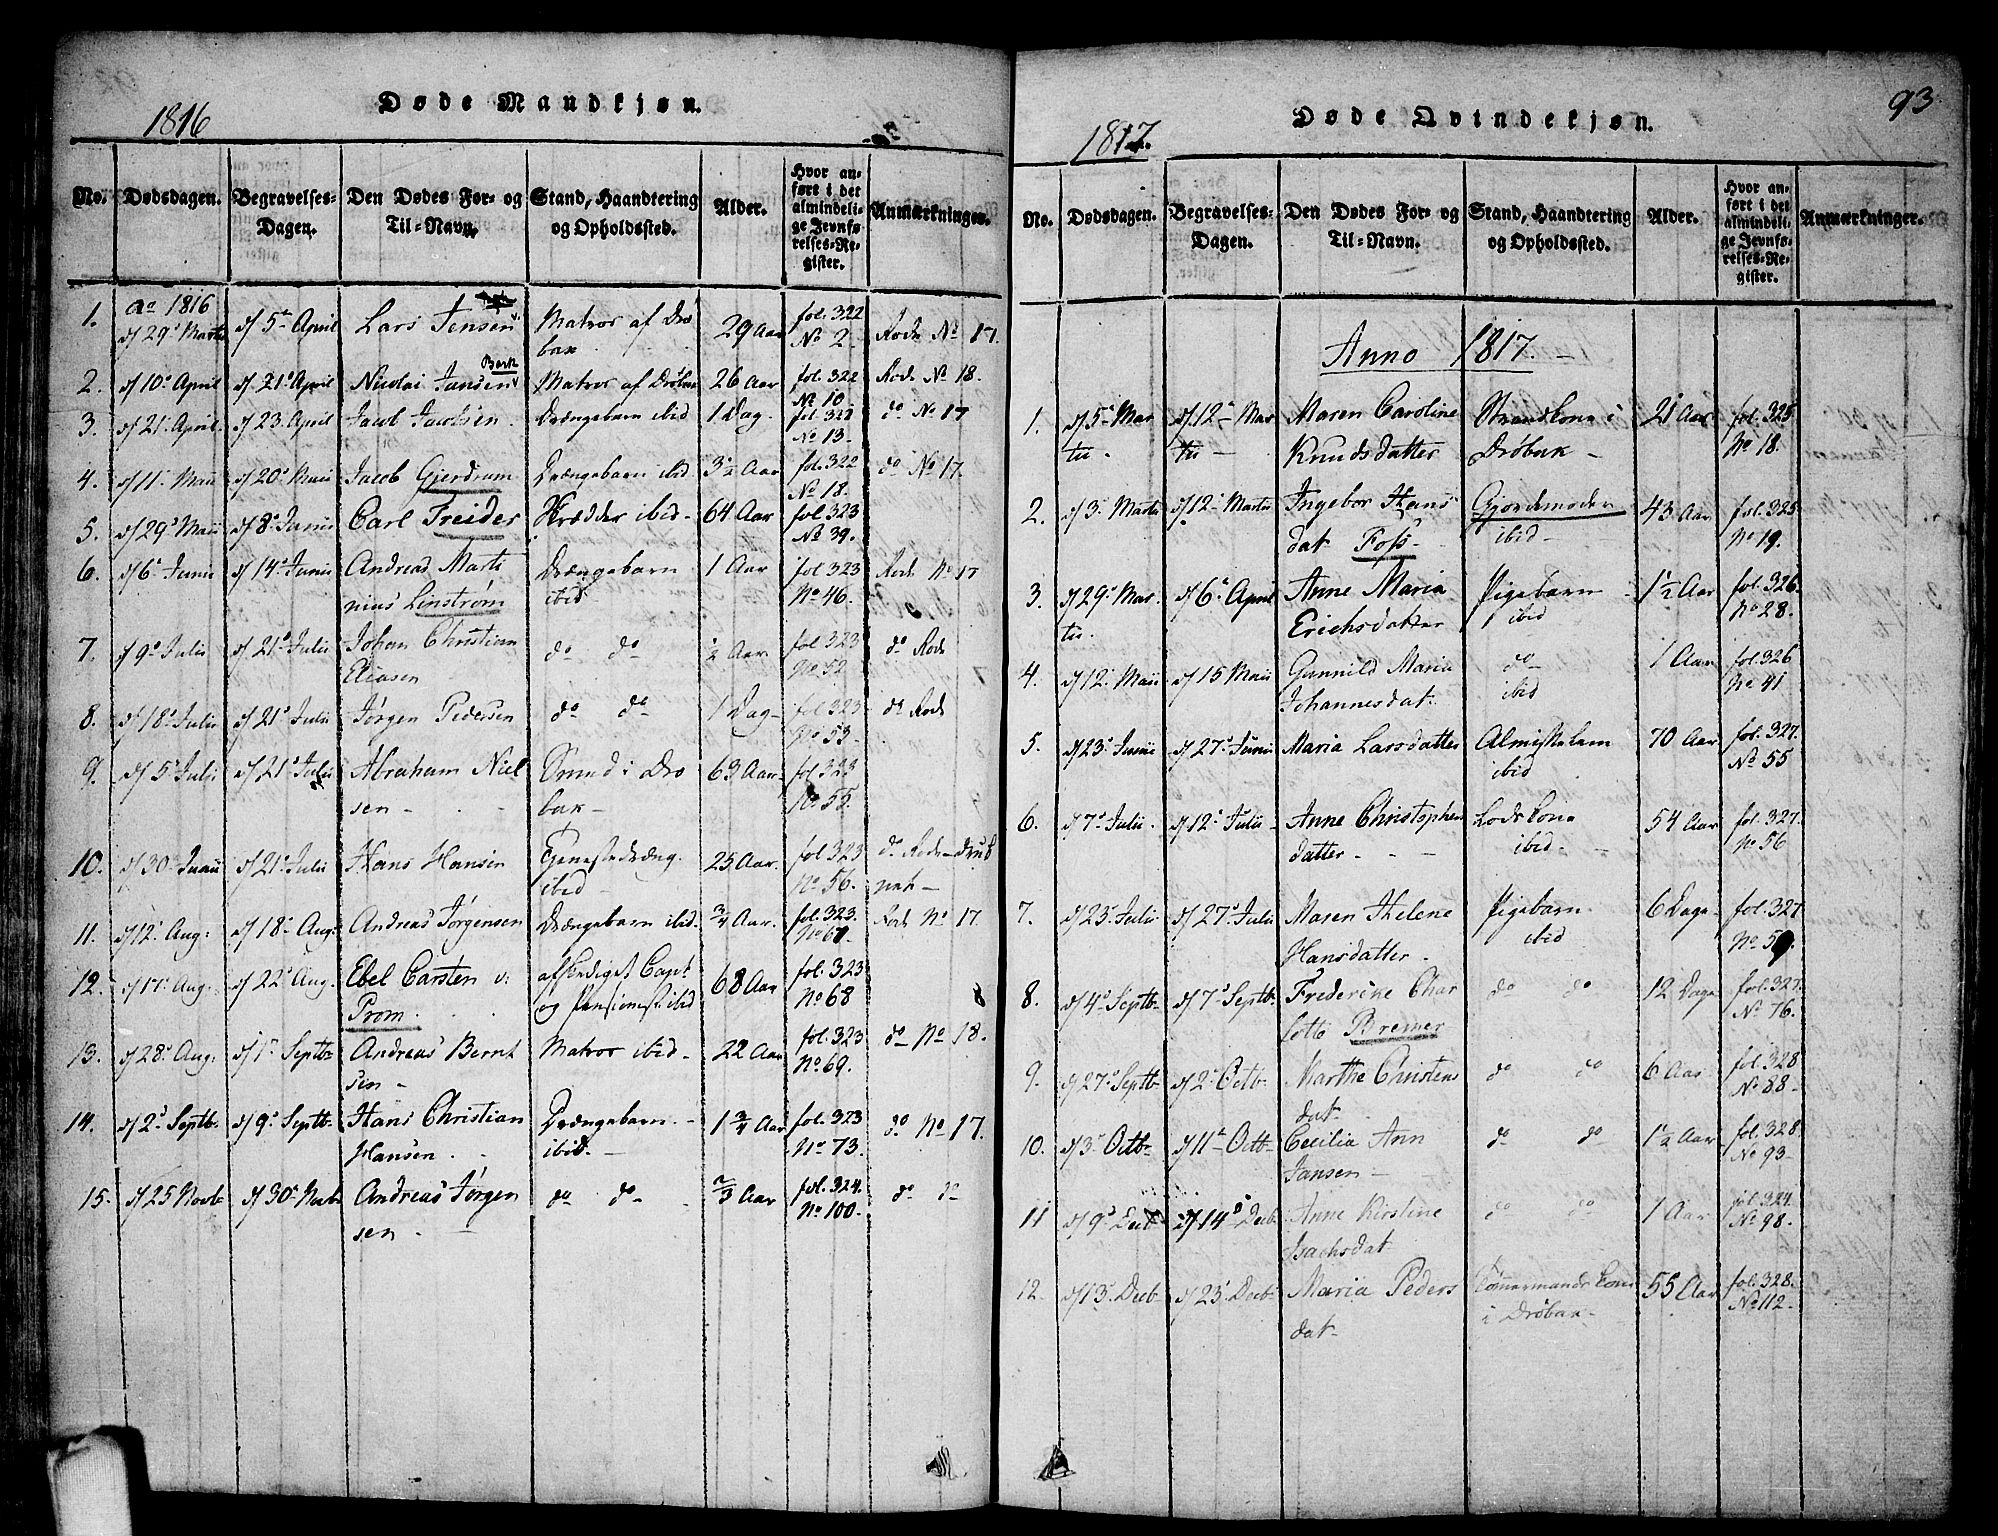 1816
Døde Mandkjøn.
No. Dødsdagen. Begravelses-Dagen. Den Dødes For- og Til-Navn. Stand, Haandtering og Opholdssted. Alder. Hvor anført i det almindelige Jevnførelses-Register. Anmærkninger.
ao 1816
1. d 29 Martii d 5 April Lars Jensen Matros af Drøbak 29 Aar fol. 322 No 2 Rode No 17.
2. d 10 April d 21 April Nicolai Jansen Berk Matros af Drøbak 26 Aar fol. 322 No 10 Rode No 18.
3. d 21 April d 23 April Jacob Jacobsen Drængebarn ibid 1 Dag fol. 322 No 13 do No 17
4. d 11 Maii d 20 Maii Jacob Gjerdrum Drængebarn ibid 3½ Aar fol. 322 No 18. do No 17.
5. d 29 Maii d 8 Junii Carl Treider Skrædder ibid 64 Aar fol 323 No 39.
6. d 6 Junii d 14 Junii Andreas Martinius Linstrøm Drængebarn ibid 1 Aar fol 323 No 46. Rode No 17
7. d 9 Julii d 21 Julii Johan Christian Eliasen do do ½ Aar fol 323 No 52 do Rode
8. d 18 Julii d 21 Julii Jørgen Pedersen do do 1 Dag fol 323 No 53 do Rode
9. d 5 Julii d 21 Julii Abraham Nielsen Smed i Drøbak 63 Aar fol 323 No 55.
10. d 30 Junii d 21 Julii Hans Hansen Tjenestedræng ibid 25 Aar fol 323 No 56. do Rode druknet
11. d 12 Aug: d 18 Aug. Andreas Jørgensen Drængebarn ibid. ¾ Aar. fol. 323. No 61. Rode No 17.
12. d 17 Aug: d 22 Aug. Ebel Carsten v: Prom. afskediget Capt og Pensionist ibid 68 Aar fol. 323 No 68
13. d 28 Aug: d 1 Septb Andreas Berntsen Matros ibid 22 Aar fol. 323 No 69. do No 18.
14. d 2 Septb. d 9 Septb. Hans Christian Hansen Drængebarn ibid. 1¾ Aar fol. 323 No 73. do No 17.
15. d 25 Novb d 30 Novb Andreas Jørgensen do do ⅔ Aar fol. 324. No 100. do do
1817.
Døde Qvindekjøn.
93
No. Dødsdagen. Begravelses-Dagen. Den Dødes For- og Til-Navn. Stand, Haandtering og Opholdssted. Alder. Hvor anført i det almindelige Jevnførelses-Register. Anmærkninger.
Anno 1817.
1. d 5 Martii d 12 Martii Maren Caroline Knudsdatter Strandkone i Drøbak 21 Aar fol. 325 No 18.
2. d 3 Martii d 12 Martii Ingebor Hansdat Foss Gjordemoder ibid 43 Aar fol. 325 No 19.
3. d 29 Martii. d 6 April Anne Maria Erichsdatter Pigebarn ibid 1½ Aar fol. 326. No 28.
4. d 12 Maii d 15 Maii Gunnild Maria Johannesdat do ibid 1 Aar fol. 326 No 41
5. d 23 Junii d 27 Junii Maria Larsdatter Almisselem ibid 70 Aar fol. 327. No 55
6. d 7 Julii. d 12 Julii Anne Christophersdatter Lodskone ibid. 54 Aar fol. 327. No 56
7. d 23 Julii d 27 Julii Maren Helene Hansdatter Pigebarn ibid 6 Dage fol. 327 No 59.
8. d 4 Septb d 7 Septb Frederike Charlotte Bremer do do 12 Dage fol. 327. No 76.
9. d 27 Septb d 2 Octb. Marthe Christensdat do do 6 Aar fol. 328 No 88
10. d 3 Octb d 11 Octb Cecilia Ann Jansen do do 1½ Aar fol. 328 No 93
11 d 9 Decb d 14 Decb Anne Kirstine Isachsdat do do 1 Aar fol. 324. No 98.
12. d 13 Decb d 23 Decb Maria Pedersdat Tømmermands kone i Drøbak 55 Aar fol. 328. No 112